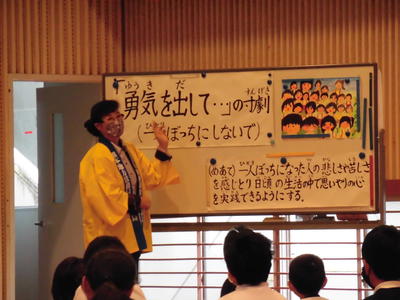 ゆうき だ
「勇気を出して…」の寸劇
すんげき
ひとり
(一人ぼっちにしないで)
ひとり かな くる
(めあて)一人ぼっちになった人の悲しさや苦しさ
を感じとり日頃の生活の中で思いやりの心
を実践できるようにする。